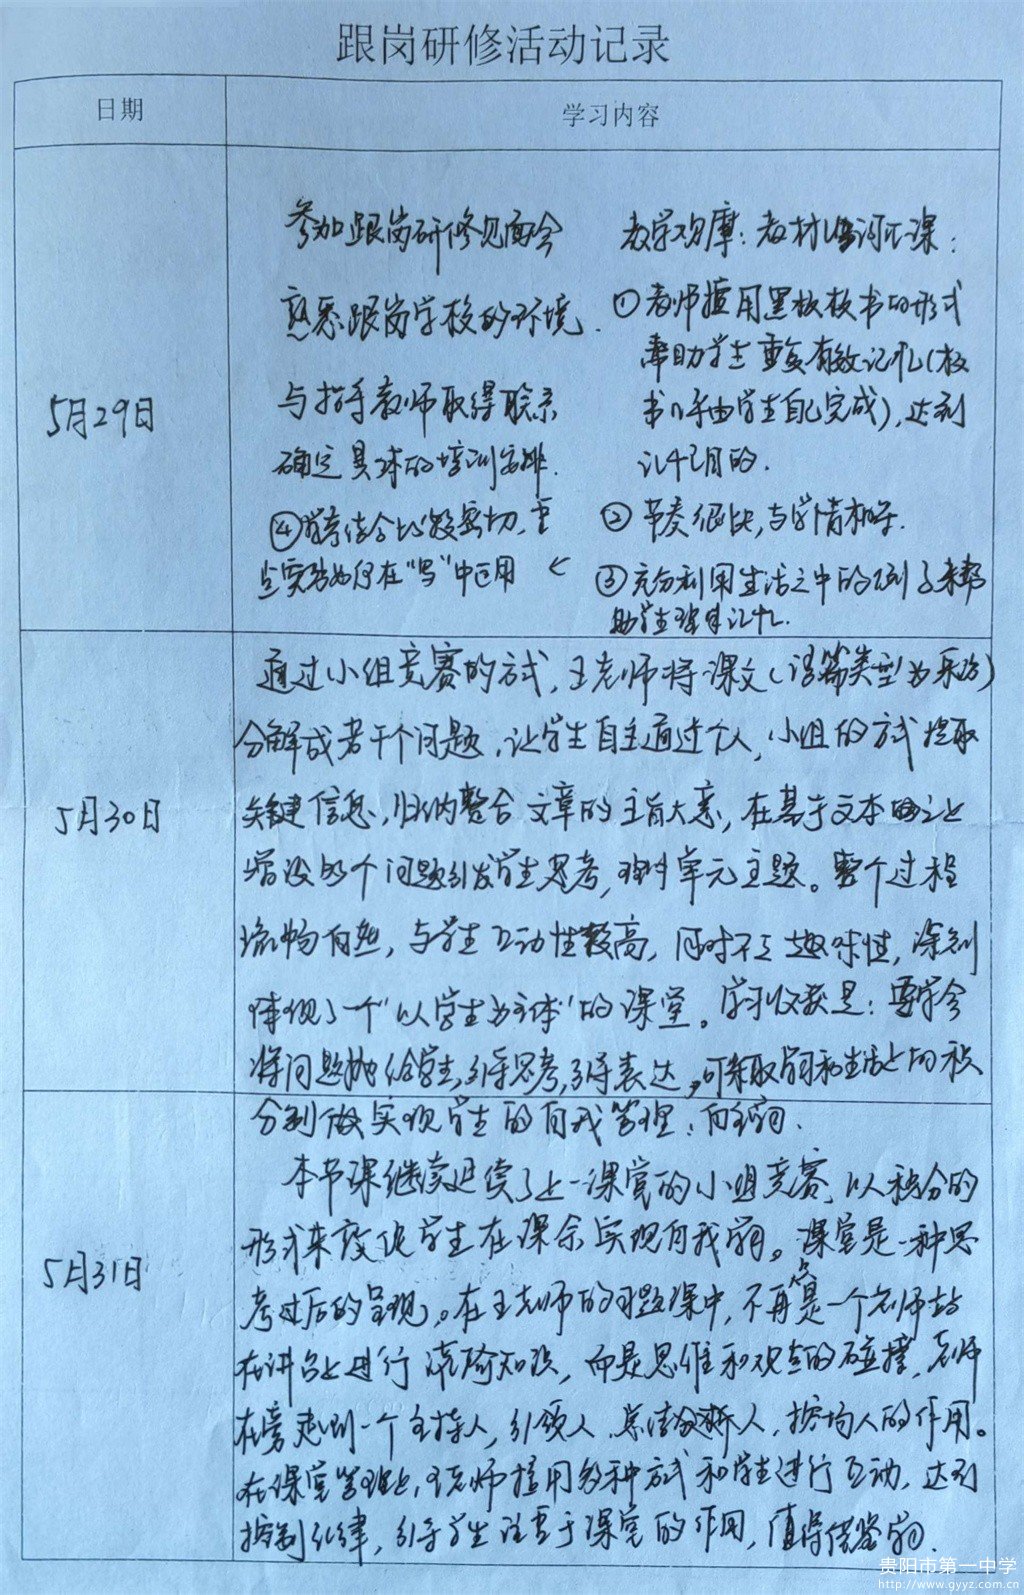 跟岗研修活动记录
日期
学习内容
5月29日
参加跟岗研修见面会
熟悉跟岗学校的环境.
与指导教师取得联系
确定具体的培训安排.
教学观摩：教材 课：
①老师擅用黑板板书的形式
帮助学生重复有效记忆(板
书 由学生自己完成)，达到
记忆目的.
②节奏很快，与学情相符.
③充分利用生活之中的例子来帮
助学生理解记忆.
④ 结合比较密切，重
点突出如何在“写”中运用
5月30日
通过小组竞赛的方式，王老师将课文(语篇类型为采访)
分解成若干个问题，让学生自主通过个人，小组的方式提取
关键信息，归纳整合文章的主旨大意，在基于文本 之上
增设多个问题引发学生思考， 单元主题。整个过程
流畅自然，与学生互动性较高，同时不乏趣味性，深刻
体现了一个“以学生为主体”的课堂。学习收获是：要学会
将问题抛给学生，引导思考，引导表达，可采取 和生活上的积
分制做实现学生的自我管理，自主学习.
5月31日
本节课继续延续了上一课堂的小组竞赛，以积分的
形式来促使学生在课余实现自我学习。课堂是一种思
考过后的呈现。在王老师的习题课中，不再仅是一个老师站
在讲台上进行灌输知识，而是思维和观点的碰撞，老师
在旁起到一个主持人，引领人，总结分析人，控场人的作用。
在课堂管理上，王老师擅用多种方式和学生进行互动，达到
控制纪律，引导学生注重于课堂的作用，值得借鉴学习.
贵阳市第一中学
http://www.gyyz.com.cn